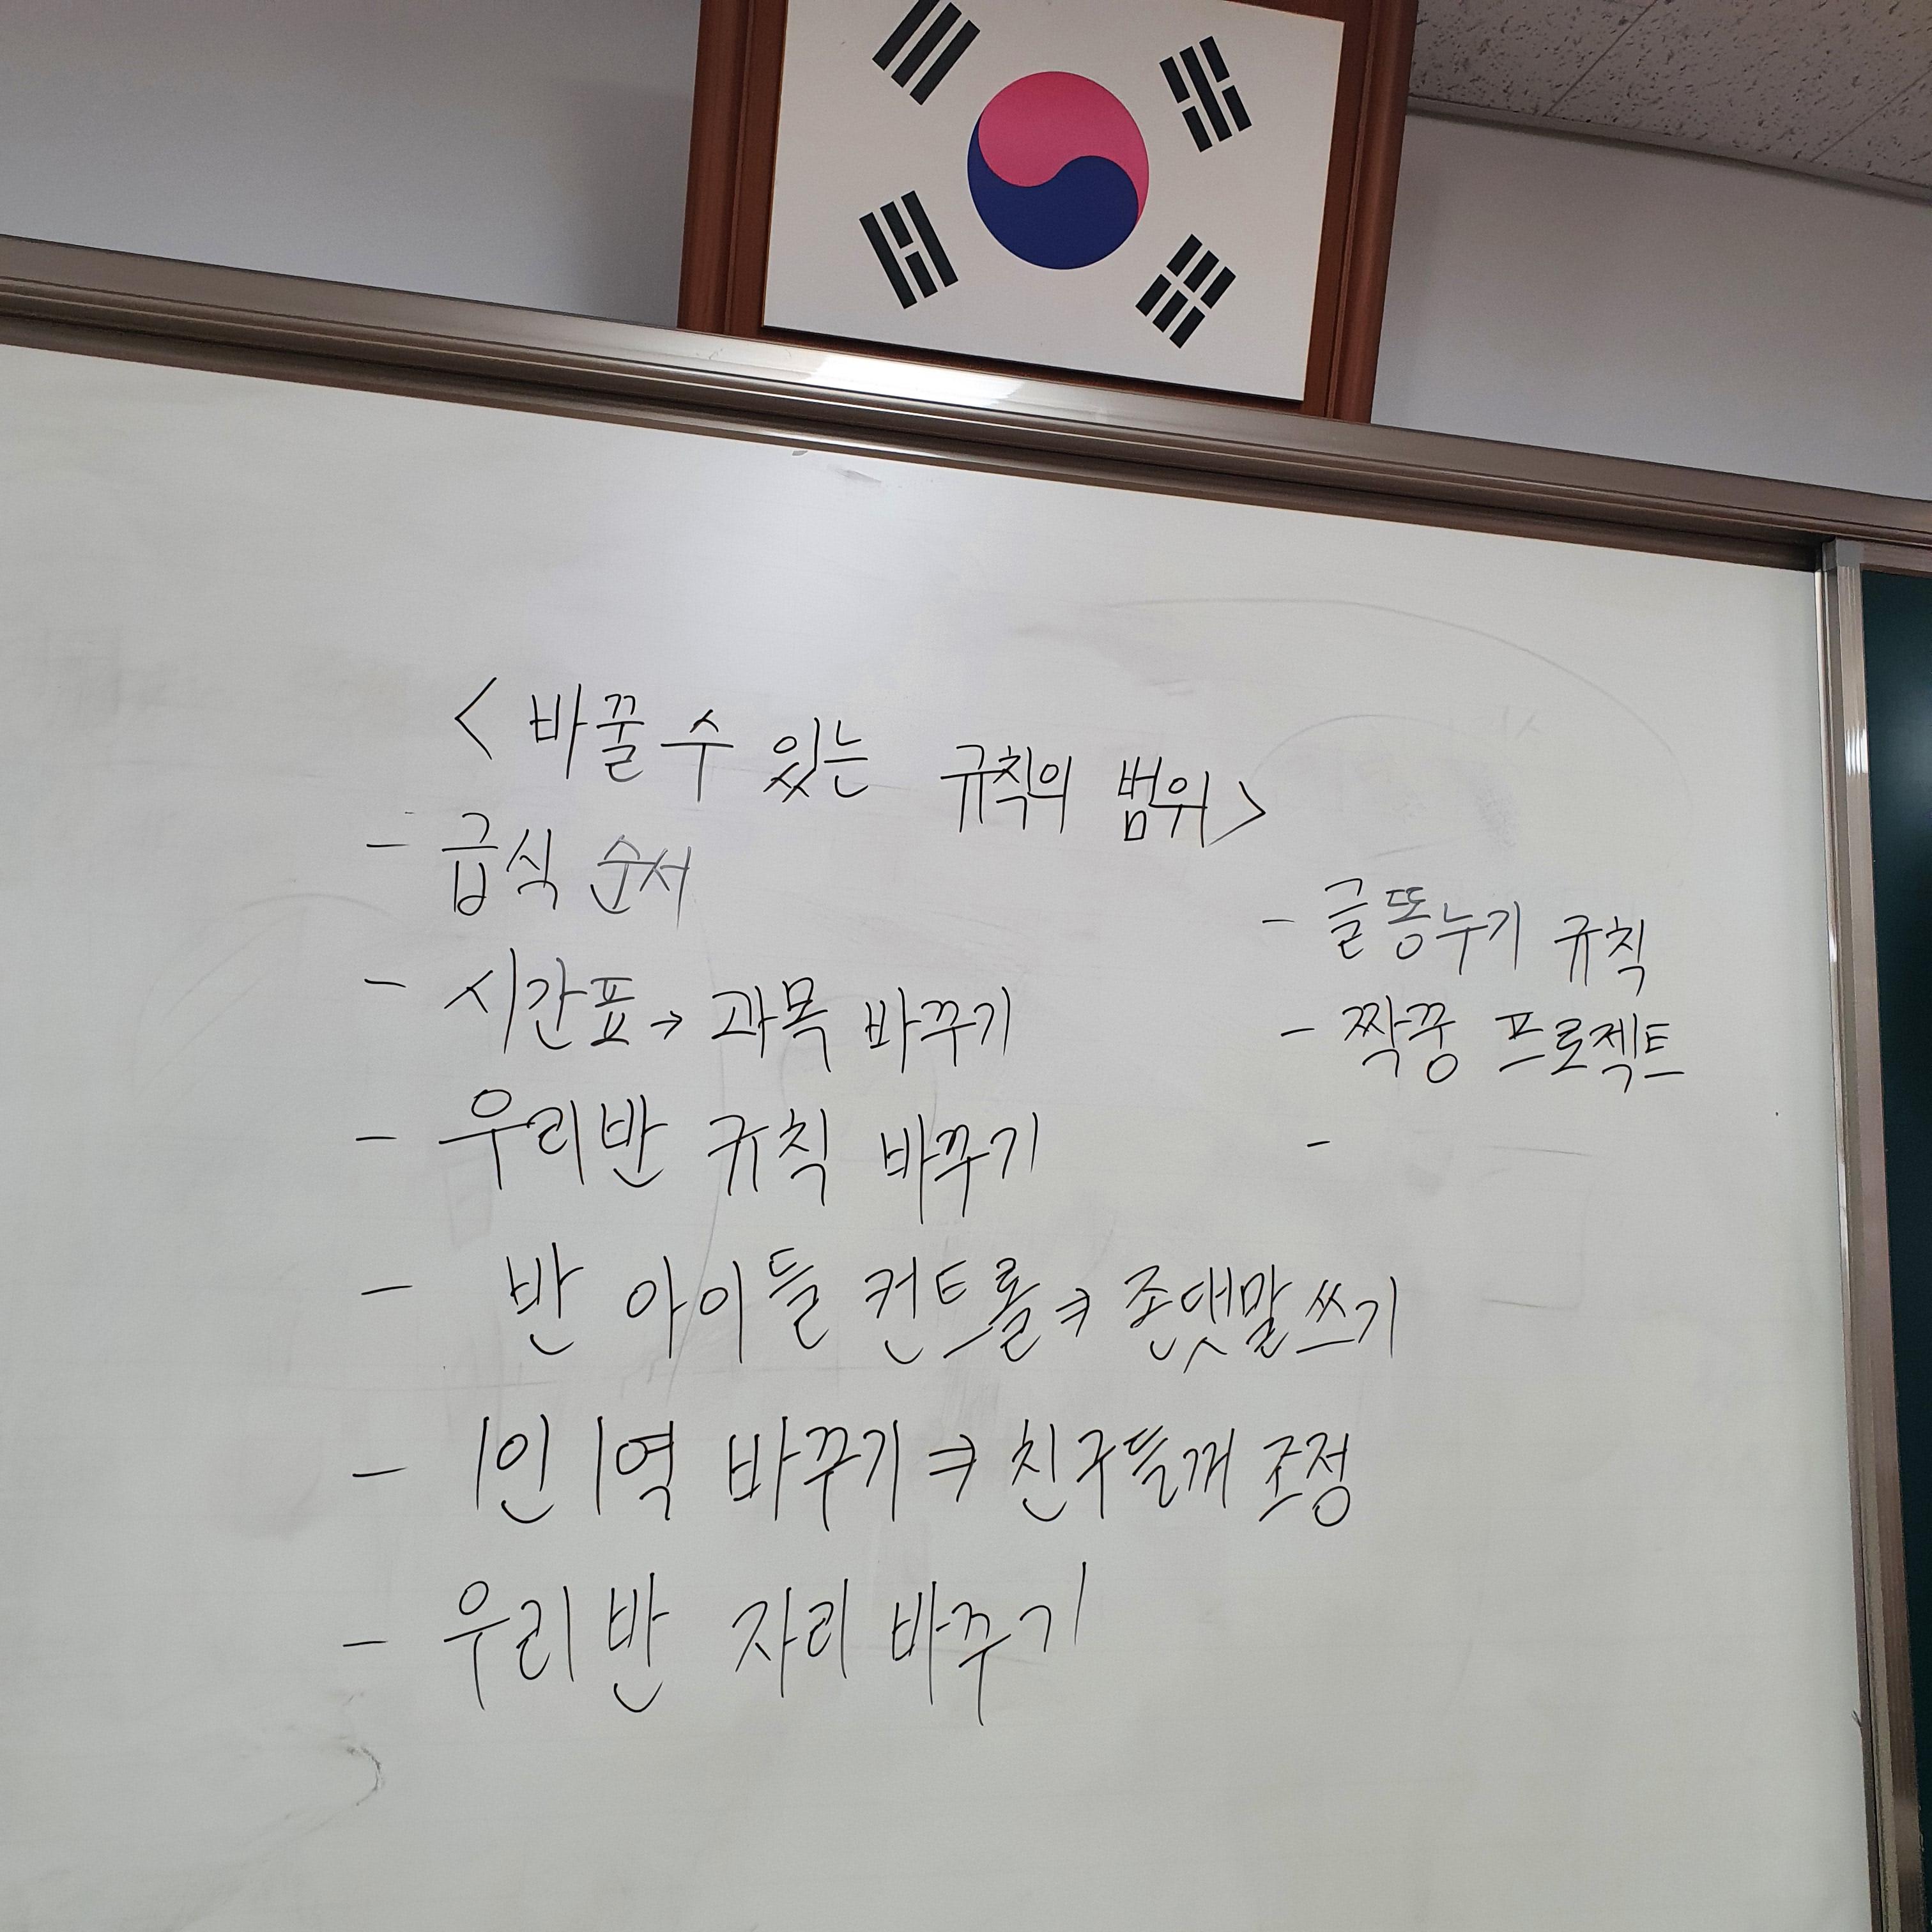 < 바꿀 수 있는 규칙의 범위 >
- 급식 순서
- 시간표 → 과목 바꾸기
- 우리반 규칙 바꾸기
- 반 아이들 컨트롤 ⇒ 존댓말 쓰기
- 1인 1역 바꾸기 ⇒ 친구들께 조정
- 우리 반 자리 바꾸기
- 글똥누기 규칙
- 짝꿍 프로젝트
-